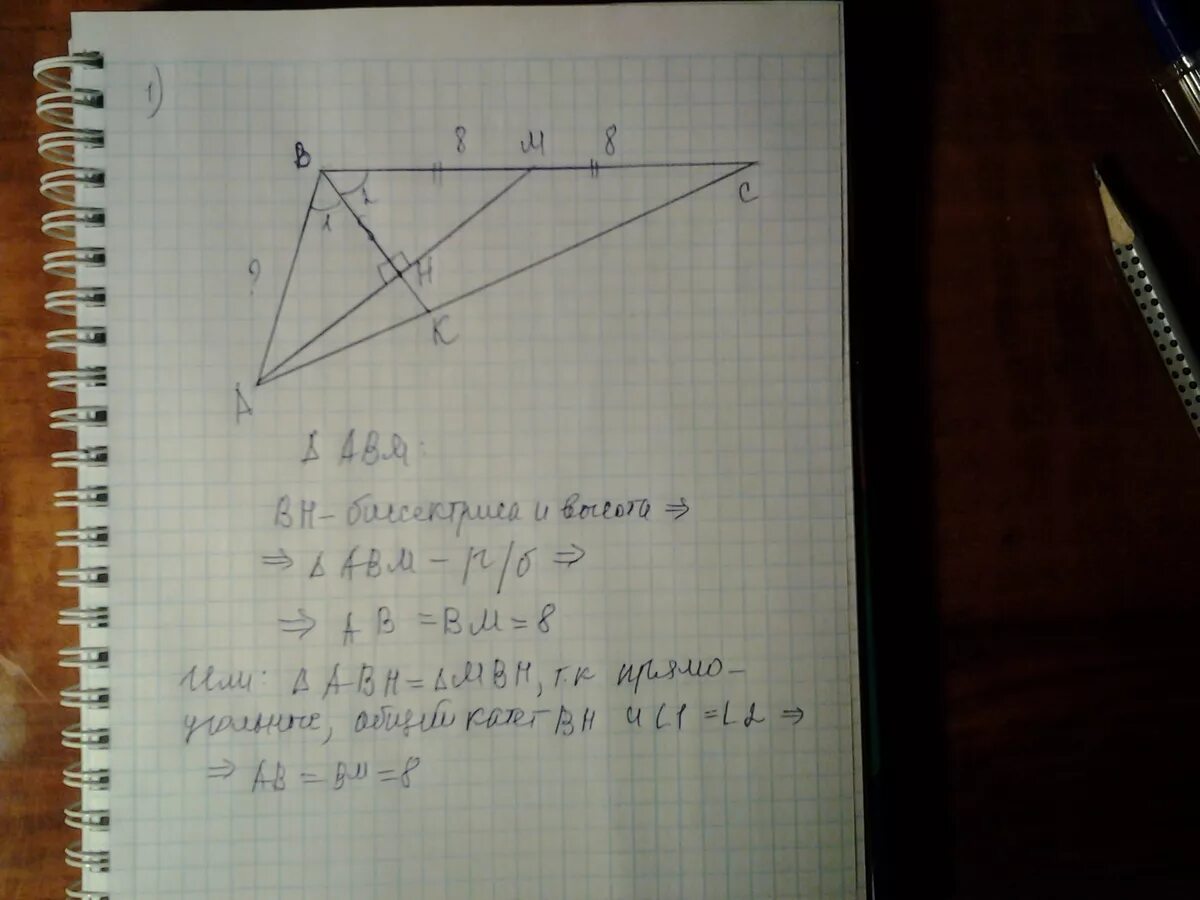 1)
8 M 8
B
C
2
1
?
H
K
A
Δ ABM:
BH – биссектриса и высота ⇒
⇒ Δ ABM – р/б ⇒
⇒ AB = BM = 8
Или: Δ ABH = ΔMBH, т.к прямо-
угольные, общий катет BH и ∠1 = ∠2 ⇒
⇒ AB = BM = 8